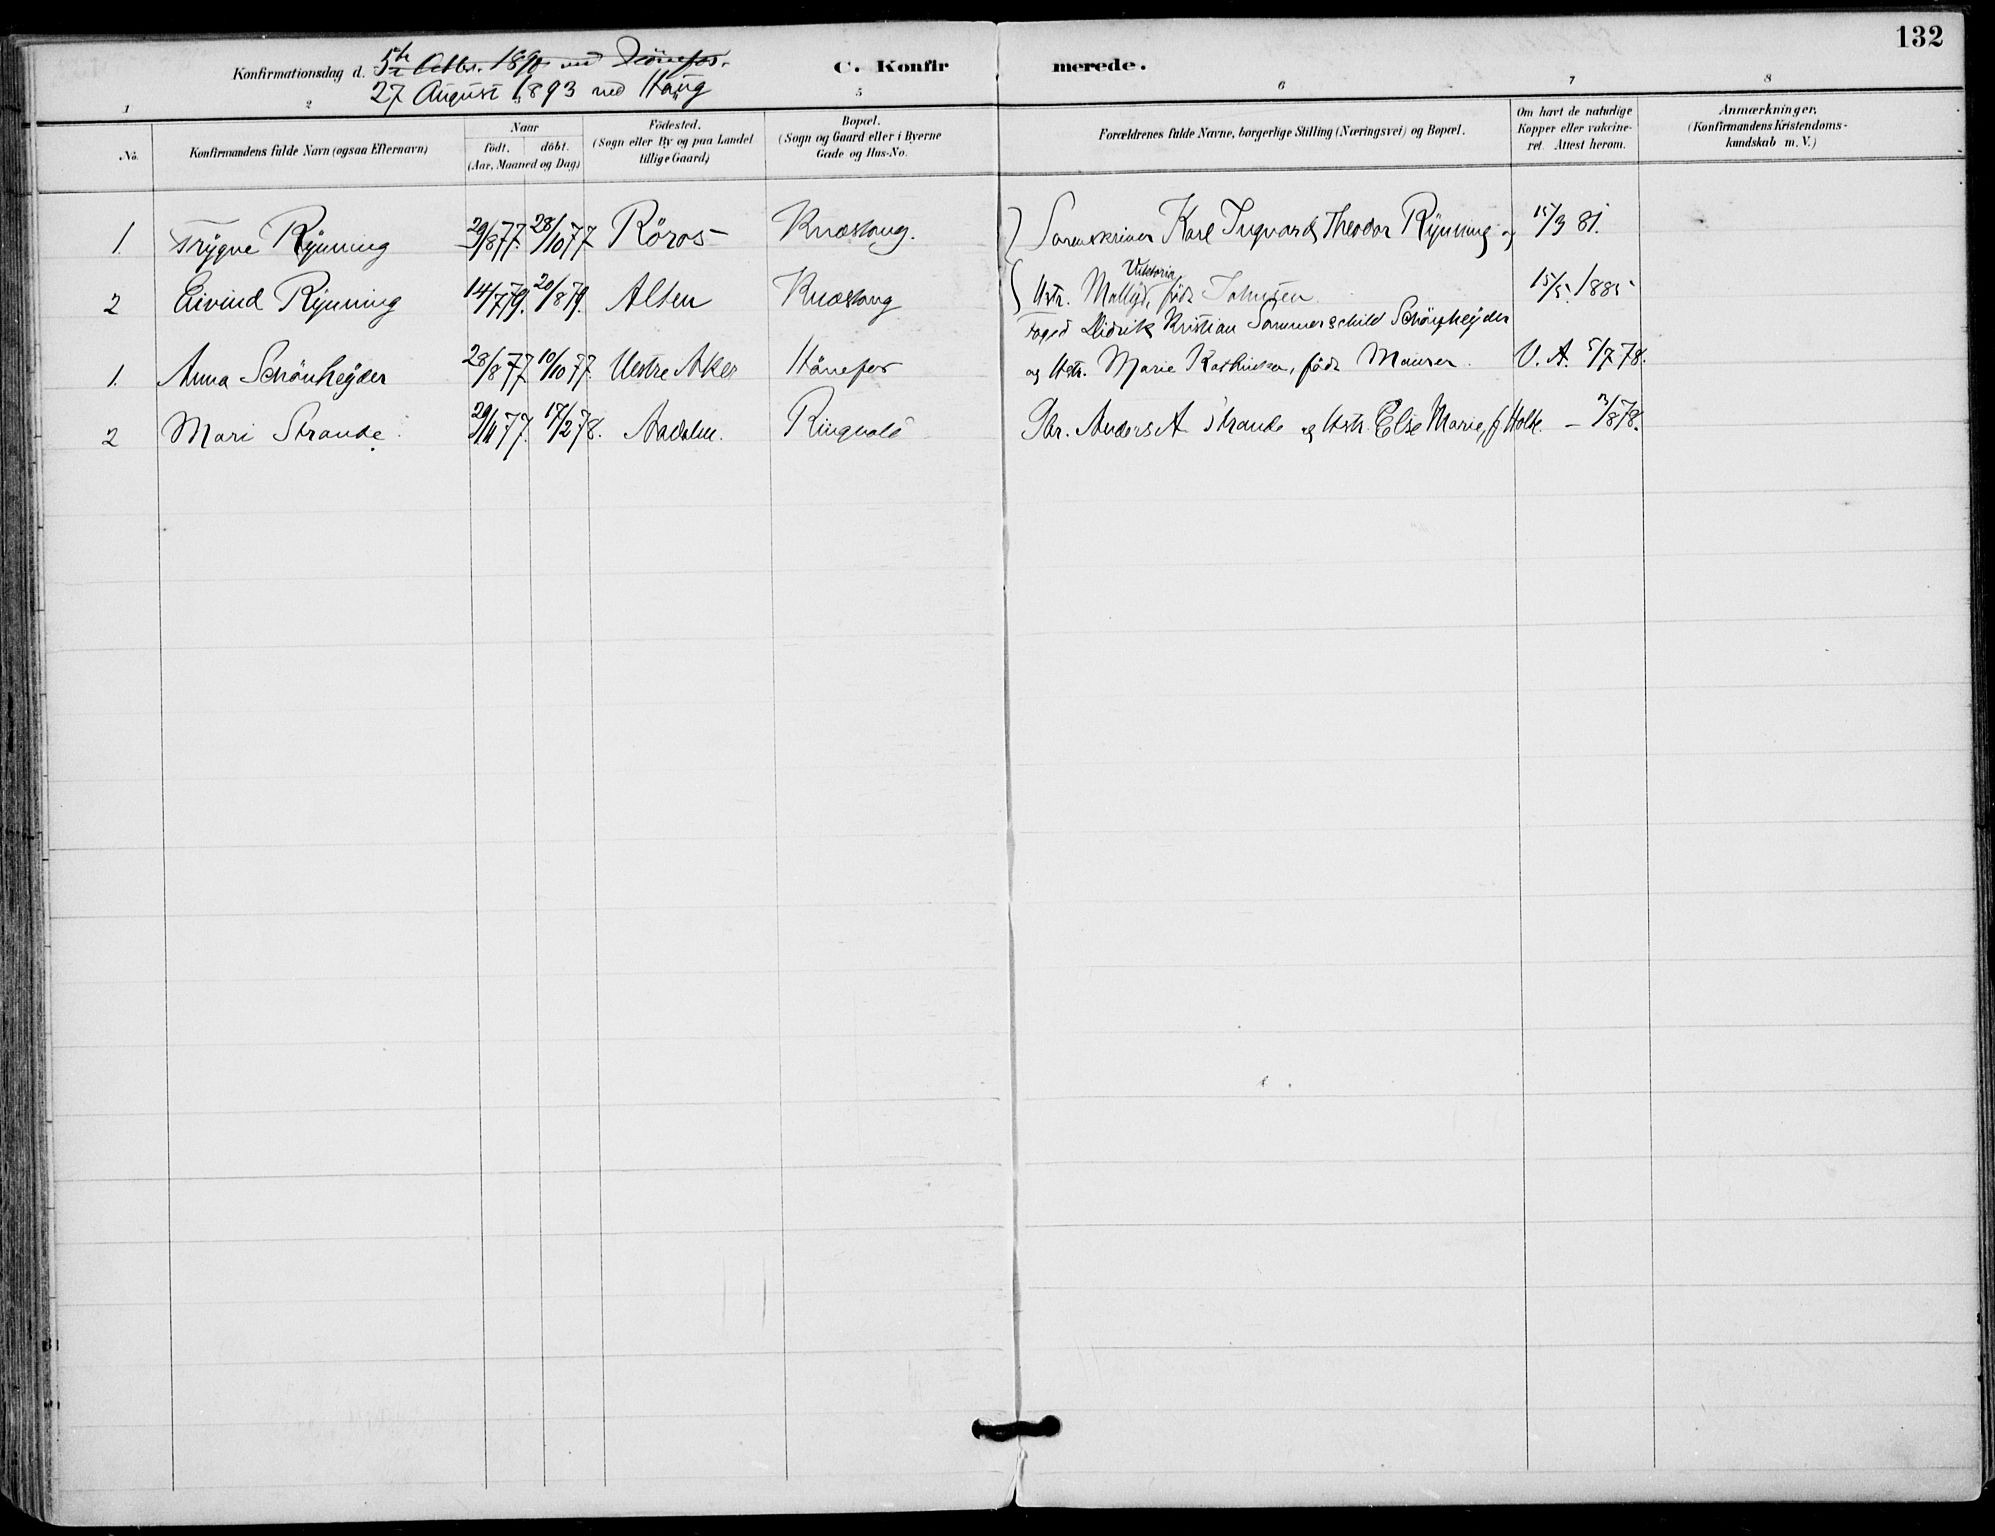 132
Konfirmationsdag d. 5te Oktbr. 1890 ved Hönefos.
C. Konfirmerede.
27 August 1893 ved Haug
1 2 3 4 5 6 7 8
No.
Konfirmandens fulde Navn (ogsaa Efternavn)
Naar
födt. döbt.
(Aar, Maaned og Dag)
Födested.
(Sogn eller By og paa Landet
tillige Gaard)
Bopæl.
(Sogn og Gaard eller i Byerne
Gade og Hus-No.
Forældrenes fulde Navne, borgerlige Stilling (Næringsvei) og Bopæl.
Om havt de naturlige
Kopper eller vakcine-
ret. Attest herom.
Anmærkninger.
(Konfirmandens Kristendoms-
kundskab m. V.)
1. Trygve Rynning 29/8 77. 28/10 77 Röros Knæstang. Sorenskriver Karl Ingvard Theodor Rynning og 15/3 81.
2 Eivind Rynning 14/7 79. 20/8 79. Alten Knæstang Hstr. Viktoria födt Johnsen 15/5 1885
Foged Didrik Kristian Sommerschild Schönheyder
1. Anna Schönheyder 28/8 77. 10/10 77. Vestre Aker Hönefos og Hstr. Marie Kathinka, födt Maurer. V. A. 5/7 78.
2 Mari Strande. 29/11 77. 17/2 78. Aadalen. Ringvold Gbr. Anders A. Strande og Hstr. Else Marie, f Holte. – 3/8 78.